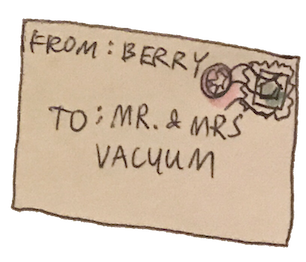 FROM: BERRY
TO: MR. & MRS
VACUUM